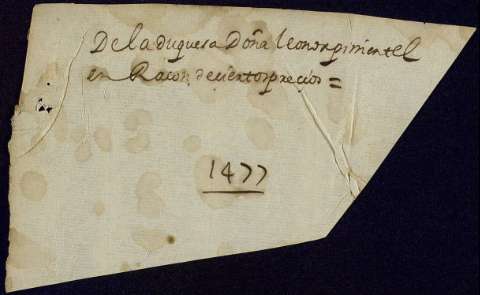 De la duquesa Doña leonor pimentel
en Raçon de ciertos precios =
1477